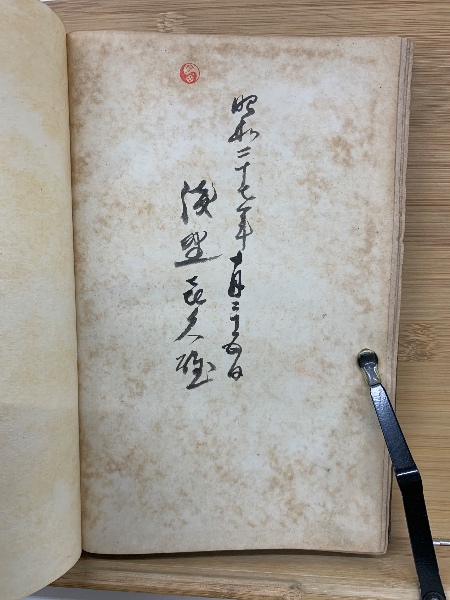 昭和二十七年十月二十五日
浅野喜久雄